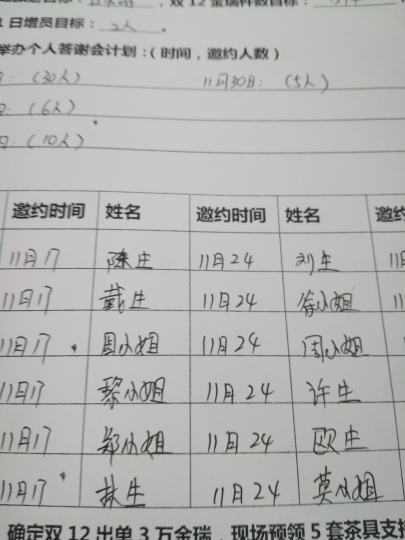 双12金瑞件数目标：
日增员目标：2人。
举办个人答谢会计划：（时间，邀约人数）
（30人） 11月30日：（5人）
（6人）
（10人）
邀约时间 姓名 邀约时间 姓名
11月17 陈生 11月24 刘生
11月17 戴生 11月24 徐小姐
11月17 周小姐 11月24 周小姐
11月17 黎小姐 11月24 许生
11月17 郑小姐 11月24 欧生
11月17 生 11月24 莫小姐
确定双12出单3万金瑞，现场预领5套茶具支持